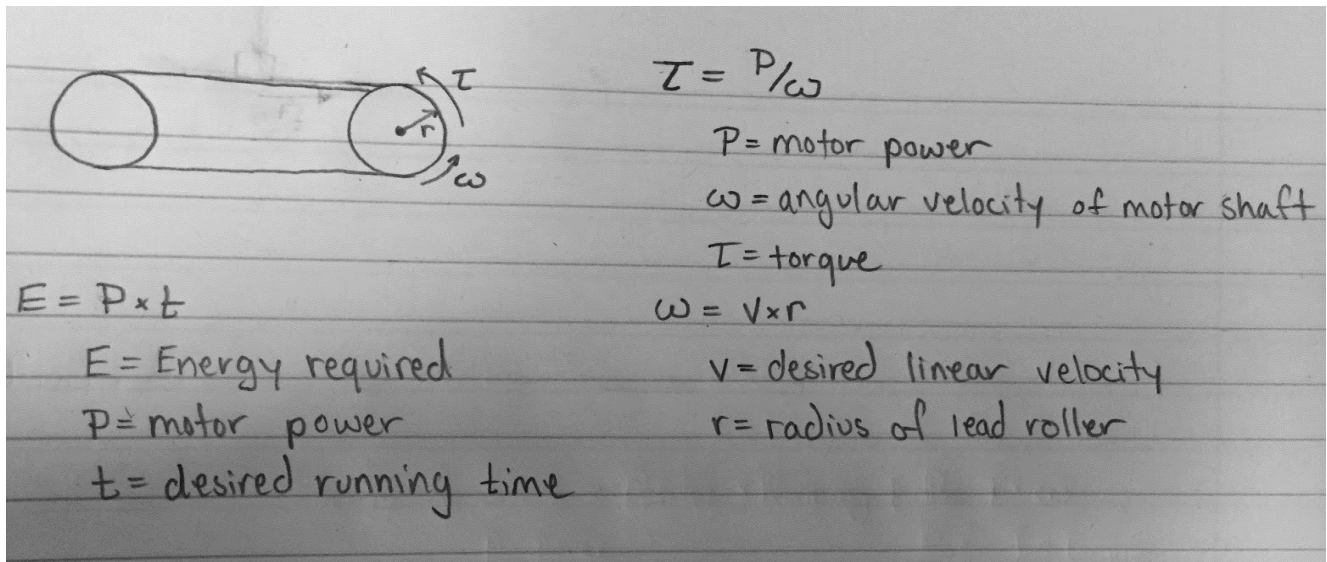 τ
r
ω
E = P × t
E = Energy required
P = motor power
t = desired running time
τ = P/ω
P = motor power
ω = angular velocity of motor shaft
τ = torque
ω = v × r
v = desired linear velocity
r = radius of lead roller